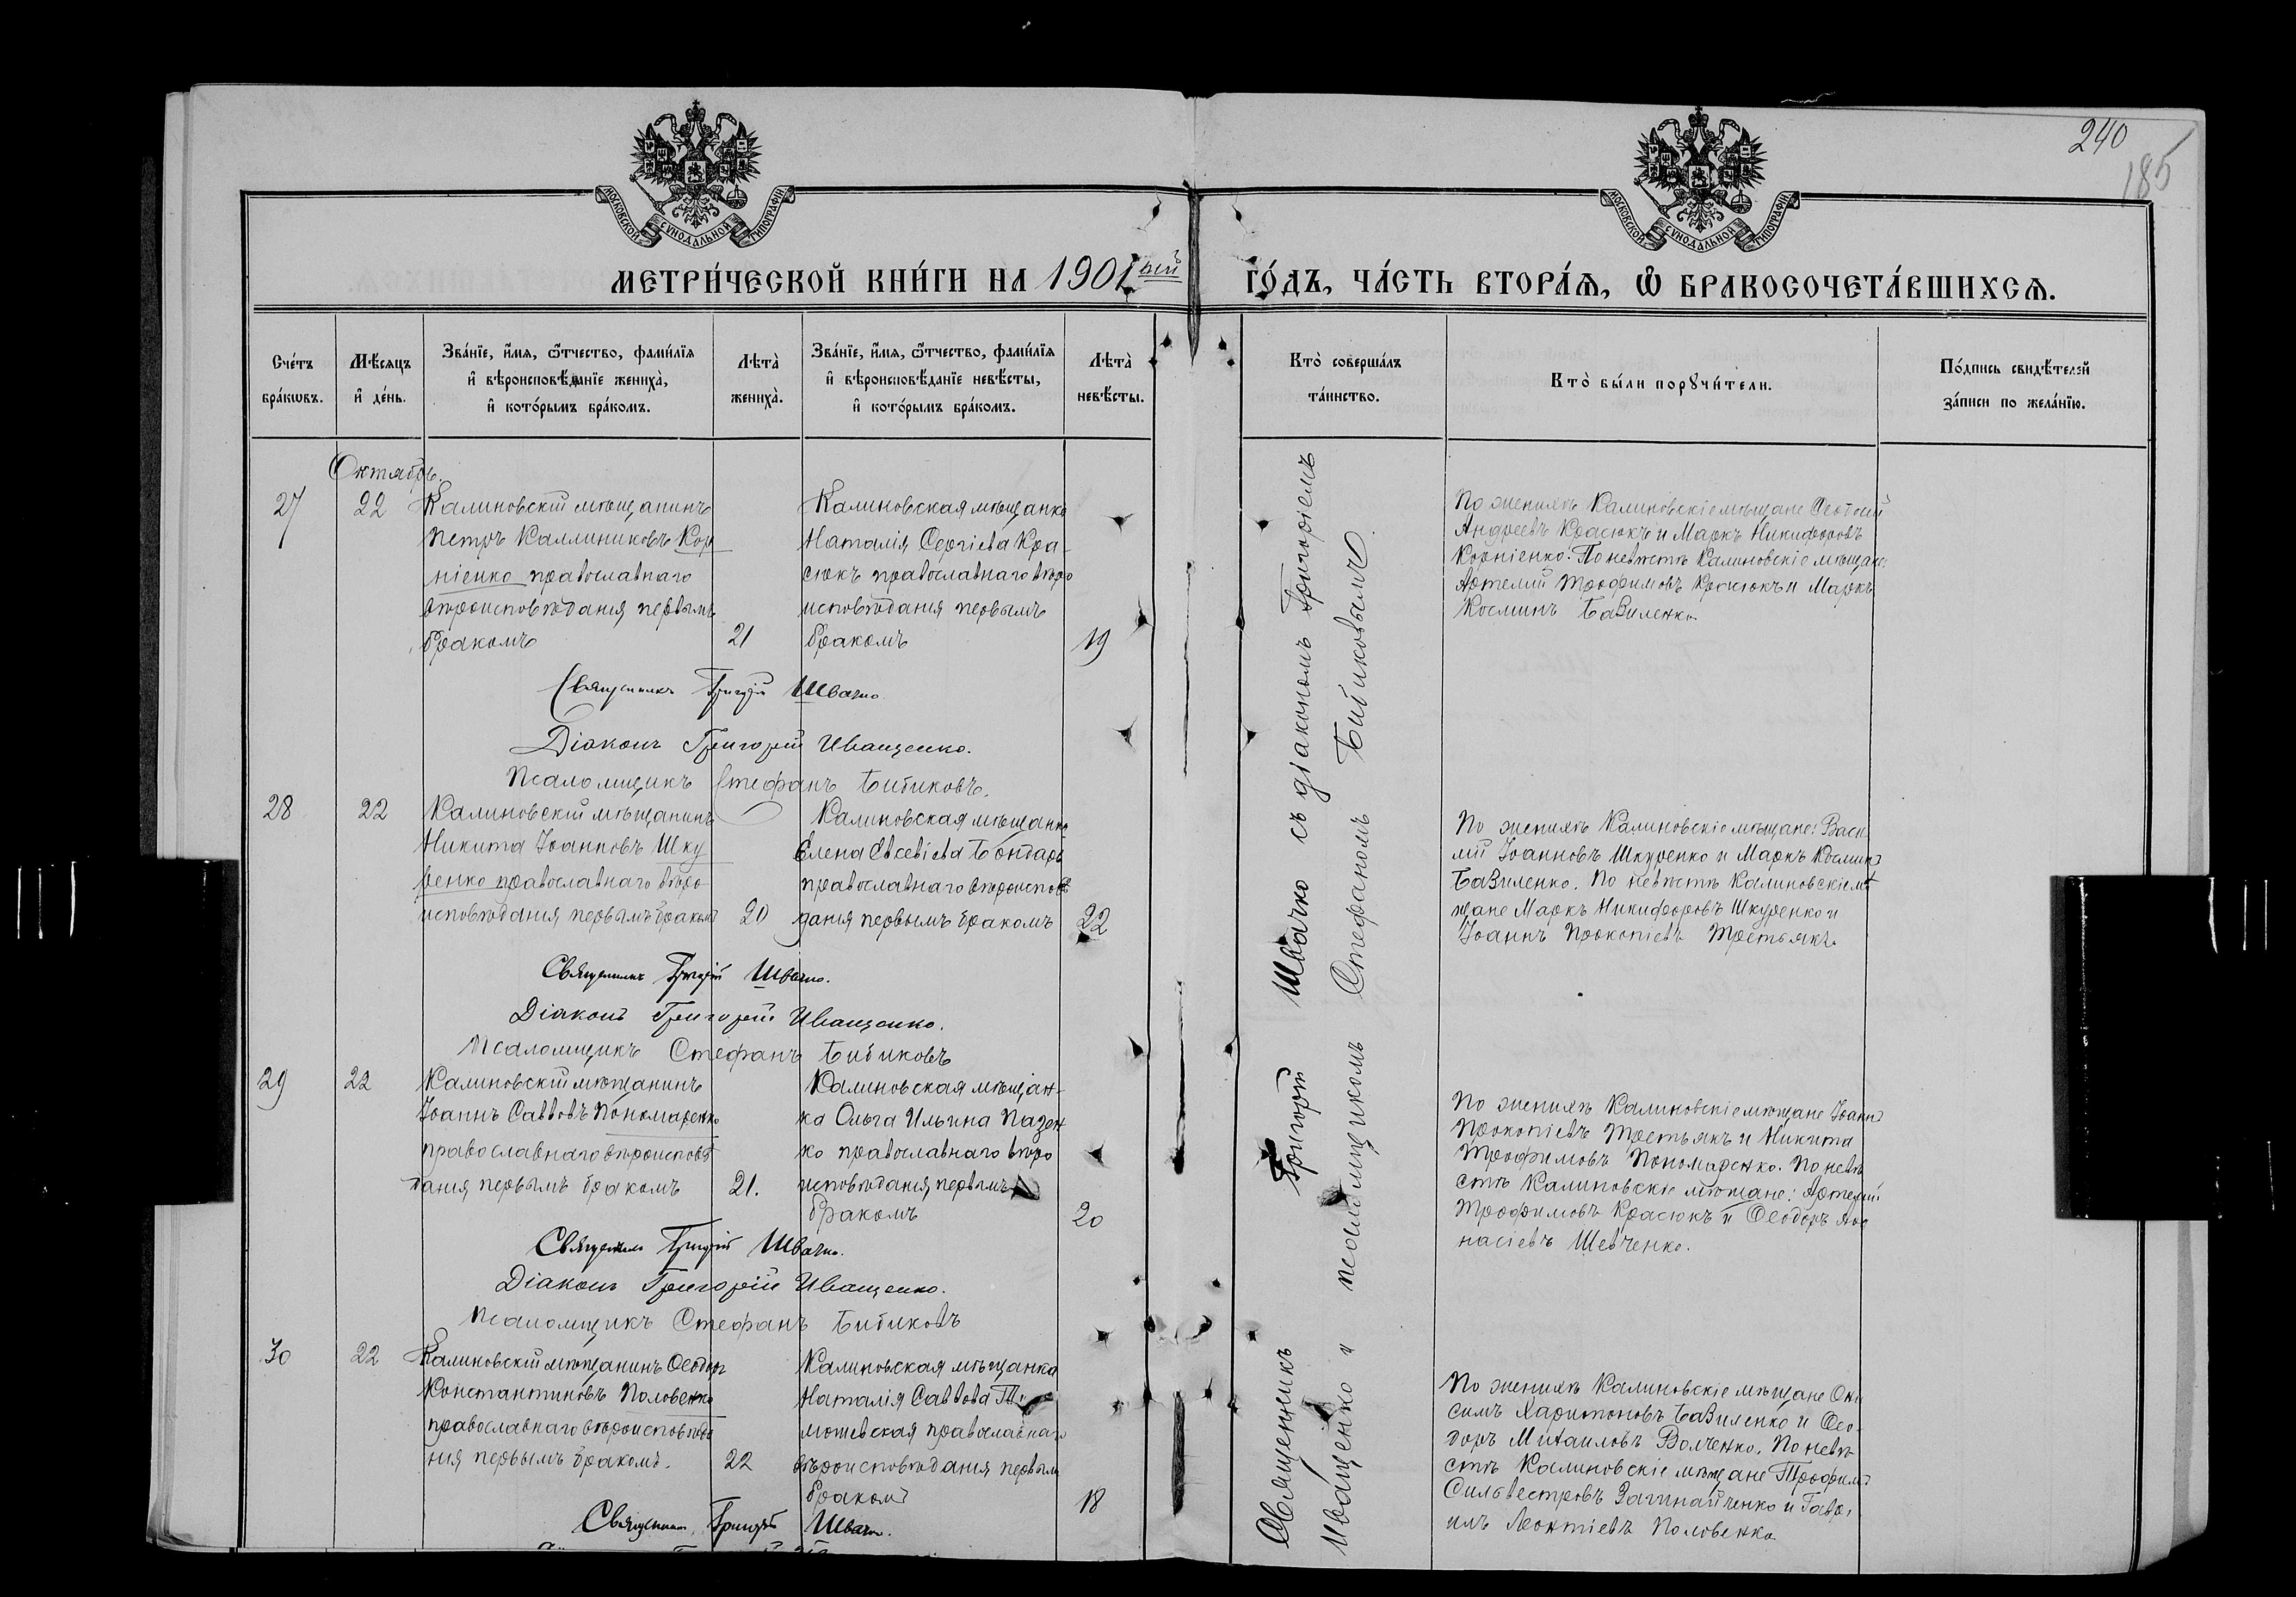 240
185
МОСКОВСКОЙ СУНОДАЛЬНОЙ ТИПОГРАФІИ
МОСКОВСКОЙ СУНОДАЛЬНОЙ ТИПОГРАФІИ
МЕТРИ́ЧЕСКОЙ КНИ́ГИ НА 1901 ый ГО́ДЪ, ЧА́СТЬ ВТОРА́Ѧ, Ѡ҆ БРАКОСОЧЕТА́ВШИХСѦ.
Сче́тъ
бра́кѡвъ.
Мѣ́сѧцъ
и҆ де́нь.
Зва́нїе, и҆́мѧ, ѻ҆́тчество, фами́лїѧ
и҆ вѣроисповѣ́данїе жениха̀,
и҆ кото́рымъ бра́комъ.
Лѣта̀
жениха̀.
Зва́нїе, и҆́мѧ, ѻ҆́тчество, фами́лїѧ
и҆ вѣроисповѣ́данїе невѣ́сты,
и҆ кото́рымъ бра́комъ.
Лѣта̀
невѣ́сты.
Кто̀ соверша́лъ
та́инство.
Кто̀ бы́ли порꙋчи́тели.
По́дпись свидѣ́телей
за́писи по жела́нїю.
Октябрь.
27
22
Калиновскій мѣщанинъ
Петръ Каллиниковъ Кор
ніенко православнаго
вѣроисповѣданія первымъ
бракомъ
21
Калиновская мѣщанка
Наталія Сергіева Кра-
сюкъ православнаго вѣро
исповѣданія первымъ
бракомъ
19
По женихѣ Калиновскіе мѣщане
Андреевъ Красюкъ и Маркъ Никифоровъ
Корніенко. По невѣстѣ Калиновскіе мѣщане:
Артемій Трофимовъ Красюкъ и Маркъ
Косминъ Базиленко.
Священникъ Григорій Швачко
Діаконъ Григорій Иващенко.
Псаломщикъ Стефанъ Бибиковъ.
28
22
Калиновскій мѣщанинъ
Никита Іоанновъ Шку
ренко православнаго вѣро
исповѣданія первымъ бракомъ
20
Калиновская мѣщанка
Елена Евсевіева Бондарь
православнаго вѣроисповѣ
данія первымъ бракомъ
22
По женихѣ Калиновскіе мѣщане: Васи
лій Іоанновъ Шкуренко и Маркъ Косминъ
Базиленко. По невѣстѣ Калиновскіе мѣ
щане Маркъ Никифоровъ Шкуренко и
Іоаннъ Прокопіевъ Третьякъ.
Священникъ Григорій Швачко.
Діаконъ Григорій Иващенко.
Псаломщикъ Стефанъ Бибиковъ
29
22
Калиновскій мѣщанинъ
Іоаннъ Саввовъ Пономаренко
православнаго вѣроисповѣ
данія первымъ бракомъ
21.
Калиновская мѣщан-
ка Ольга Ильина Пазен
ко православнаго вѣро
исповѣданія первымъ
бракомъ
20
По женихѣ Калиновскіе мѣщане Іоаннъ
Прокопіевъ Третьякъ и Никита
Трофимовъ Пономаренко. По невѣ
стѣ Калиновскіе мѣщане: Артемій
Трофимовъ Красюкъ и Ѳеодоръ Аѳа
насіевъ Шевченко.
Священникъ Григорій Швачко.
Діаконъ Григорій Иващенко.
Псаломщикъ Стефанъ Бибиковъ
30
22
Калиновскій мѣщанинъ Ѳеодоръ
Константиновъ Половенко
православнаго вѣроисповѣда
нія первымъ бракомъ.
22
Калиновская мѣщанка
Наталія Саввова Ти
мошевская православнаго
вѣроисповѣданія первымъ
бракомъ
18
По женихѣ Калиновскіе мѣщане Они
симъ Харитоновъ Базиленко и Ѳео-
доръ Михаиловъ Волченко. По невѣ
стѣ Калиновскіе мѣщане Трофимъ
Сильвестровъ Загинайченко и Гаврі
илъ Леонтіевъ Половенко
Священникъ Григорій Швачко.
Священникъ Григорій Швачко съ діакономъ Григоріемъ
Иващенко и псаломщикомъ Стефаномъ Бибиковымъ.